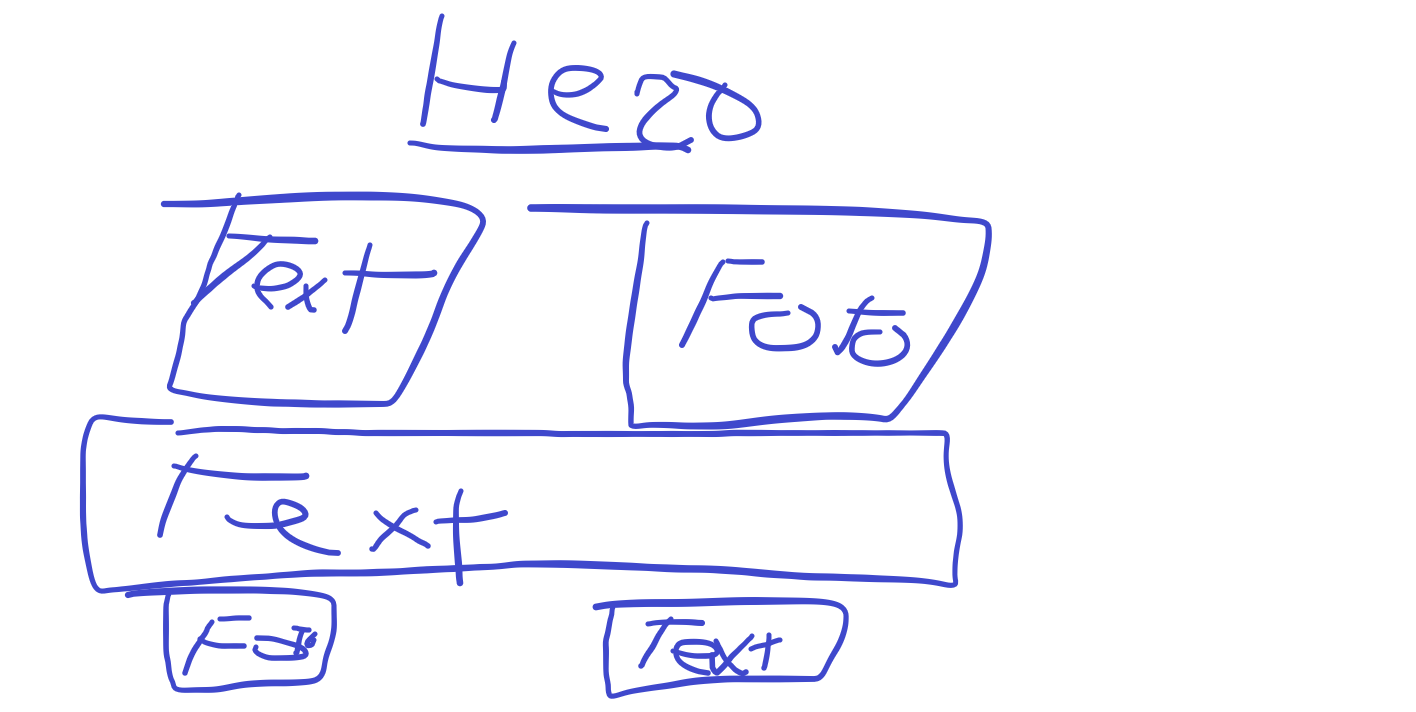 Hero
Text Foto
Text
Foto Text